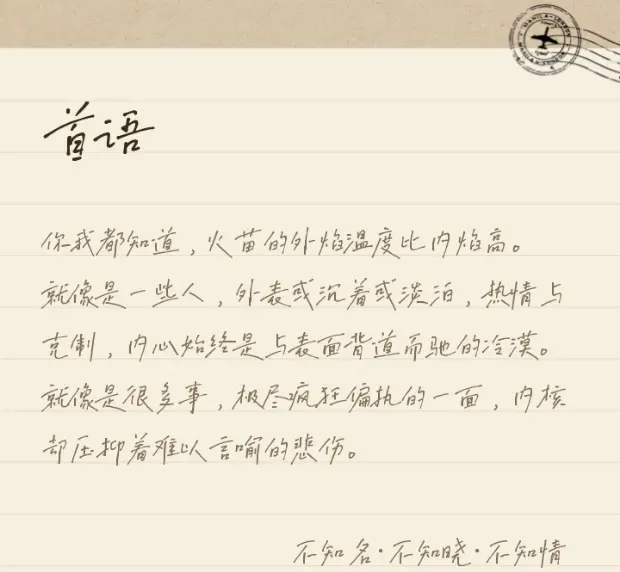 首语
你我都知道，火苗的外焰温度比内焰高。
就像是一些人，外表或沉着或淡泊，热情与
克制，内心始终是与表面背道而驰的冷漠。
就像是很多事，极尽疯狂偏执的一面，内核
却压抑着难以言喻的悲伤。
不知名·不知晓·不知情